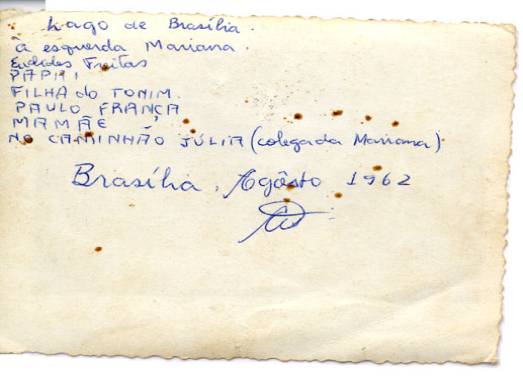 Lago de Brasília.
à esquerda Mariana.
Euclides Freitas
PAPAI
FILHA do TONIM.
PAULO FRANÇA
MAMÃE
NO CAMINHÃO JÚLIA (colega da Mariana)
Brasília, Agôsto 1962